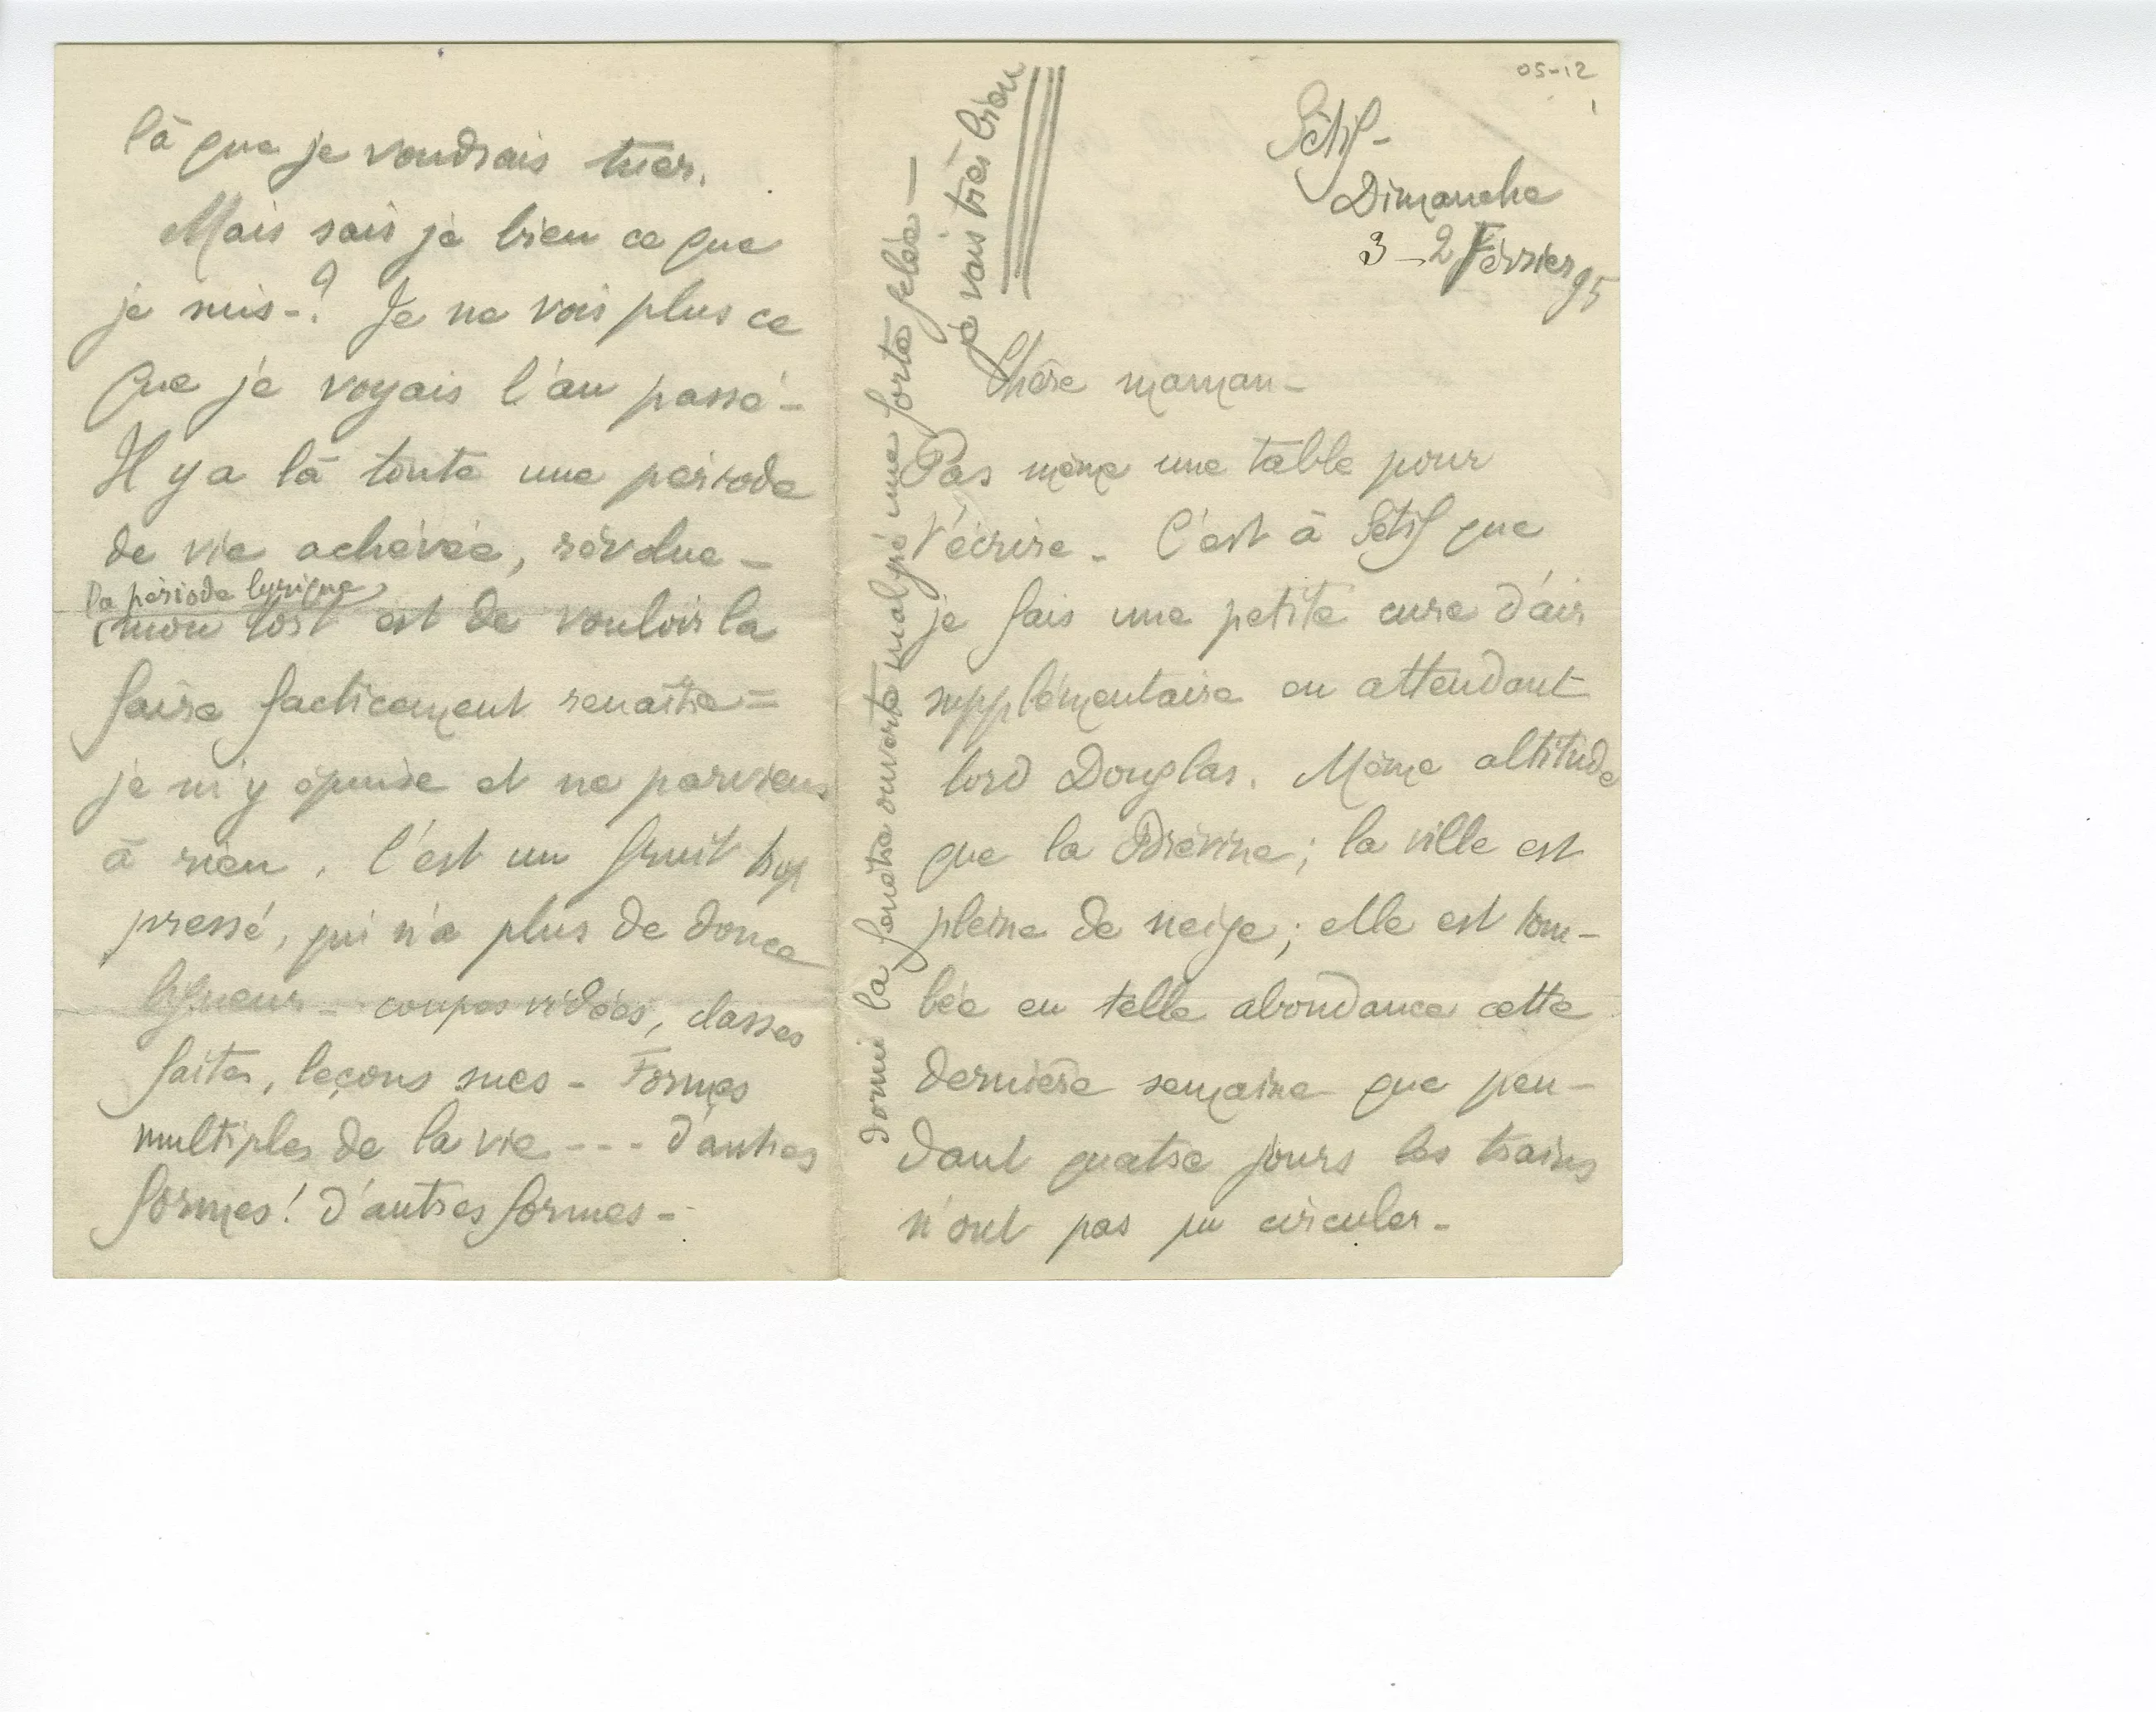 05-12
1
Sétif-
Dimanche
3 - 2 Février 95
Chère maman-
Pas même une table pour
t'écrire - C'est à Sétif que
je fais une petite cure d'air
supplémentaire en attendant
lord Douglas. Même altitude
que la Brévine; la ville est
pleine de neige; elle est tom-
bée en telle abondance cette
dernière semaine que pen-
dant quatre jours les trains
n'ont pas pu circuler-
dormi la fenêtre ouverte malgré une forte gelée -
je vais très bien
là que je voudrais tuer.
Mais sais je bien ce que
je suis-? Je ne vois plus ce
que je voyais l'an passé-
Il y a là toute une période
de vie achevée, révolue -
la période lyrique,
(mon tort est de vouloir la
faire facticement renaître=
je m'y épuise et ne parviens
à rien. C'est un fruit trop
pressé, qui n'a plus de douce
liqueur - coupes vidées, classes
faites, leçons sues - Formes
multiples de la vie --- d'autres
formes! d'autres formes-